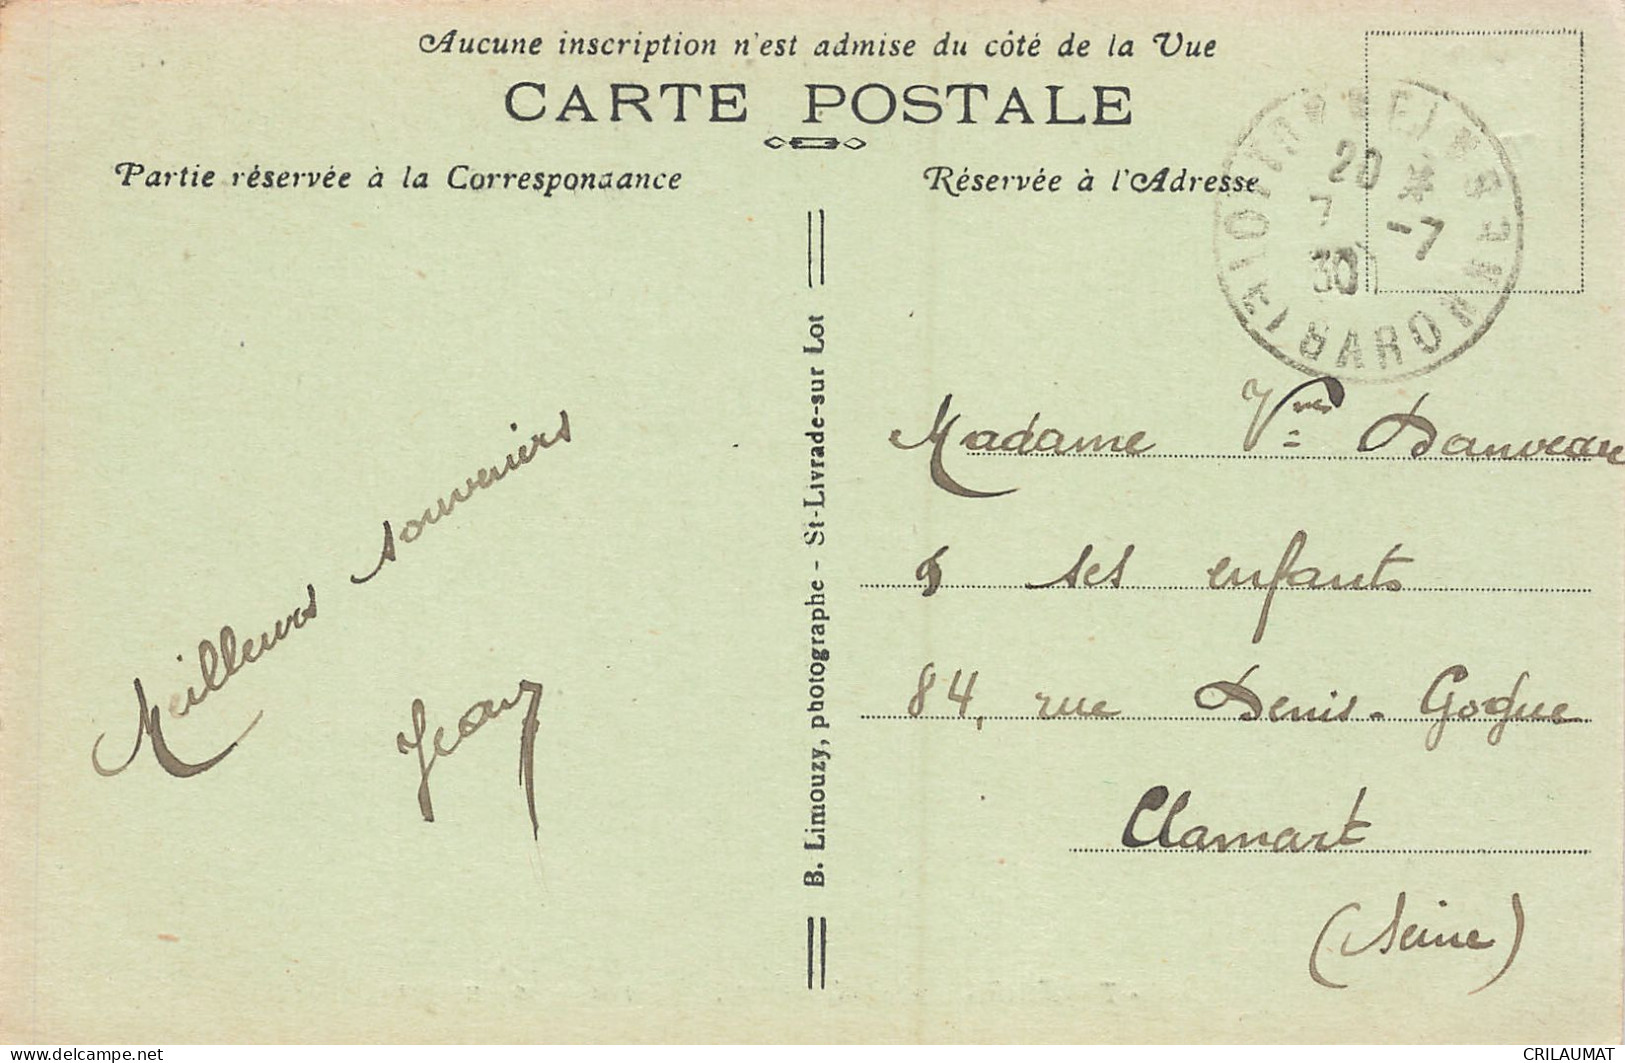 Aucune inscription n'est admise du côté de la Vue
CARTE POSTALE
Partie réservée à la Correspondance
Réservée à l'Adresse
20 *
7 -7
30
Meilleurs souvenirs
Jean
B. Limouzy, photographe - St-Livrade-sur Lot
Madame Vve Danveau
& ses enfants
84, rue Denis-Gogue
Clamart
(Seine)
www.delcampe.net
CRILAUMAT